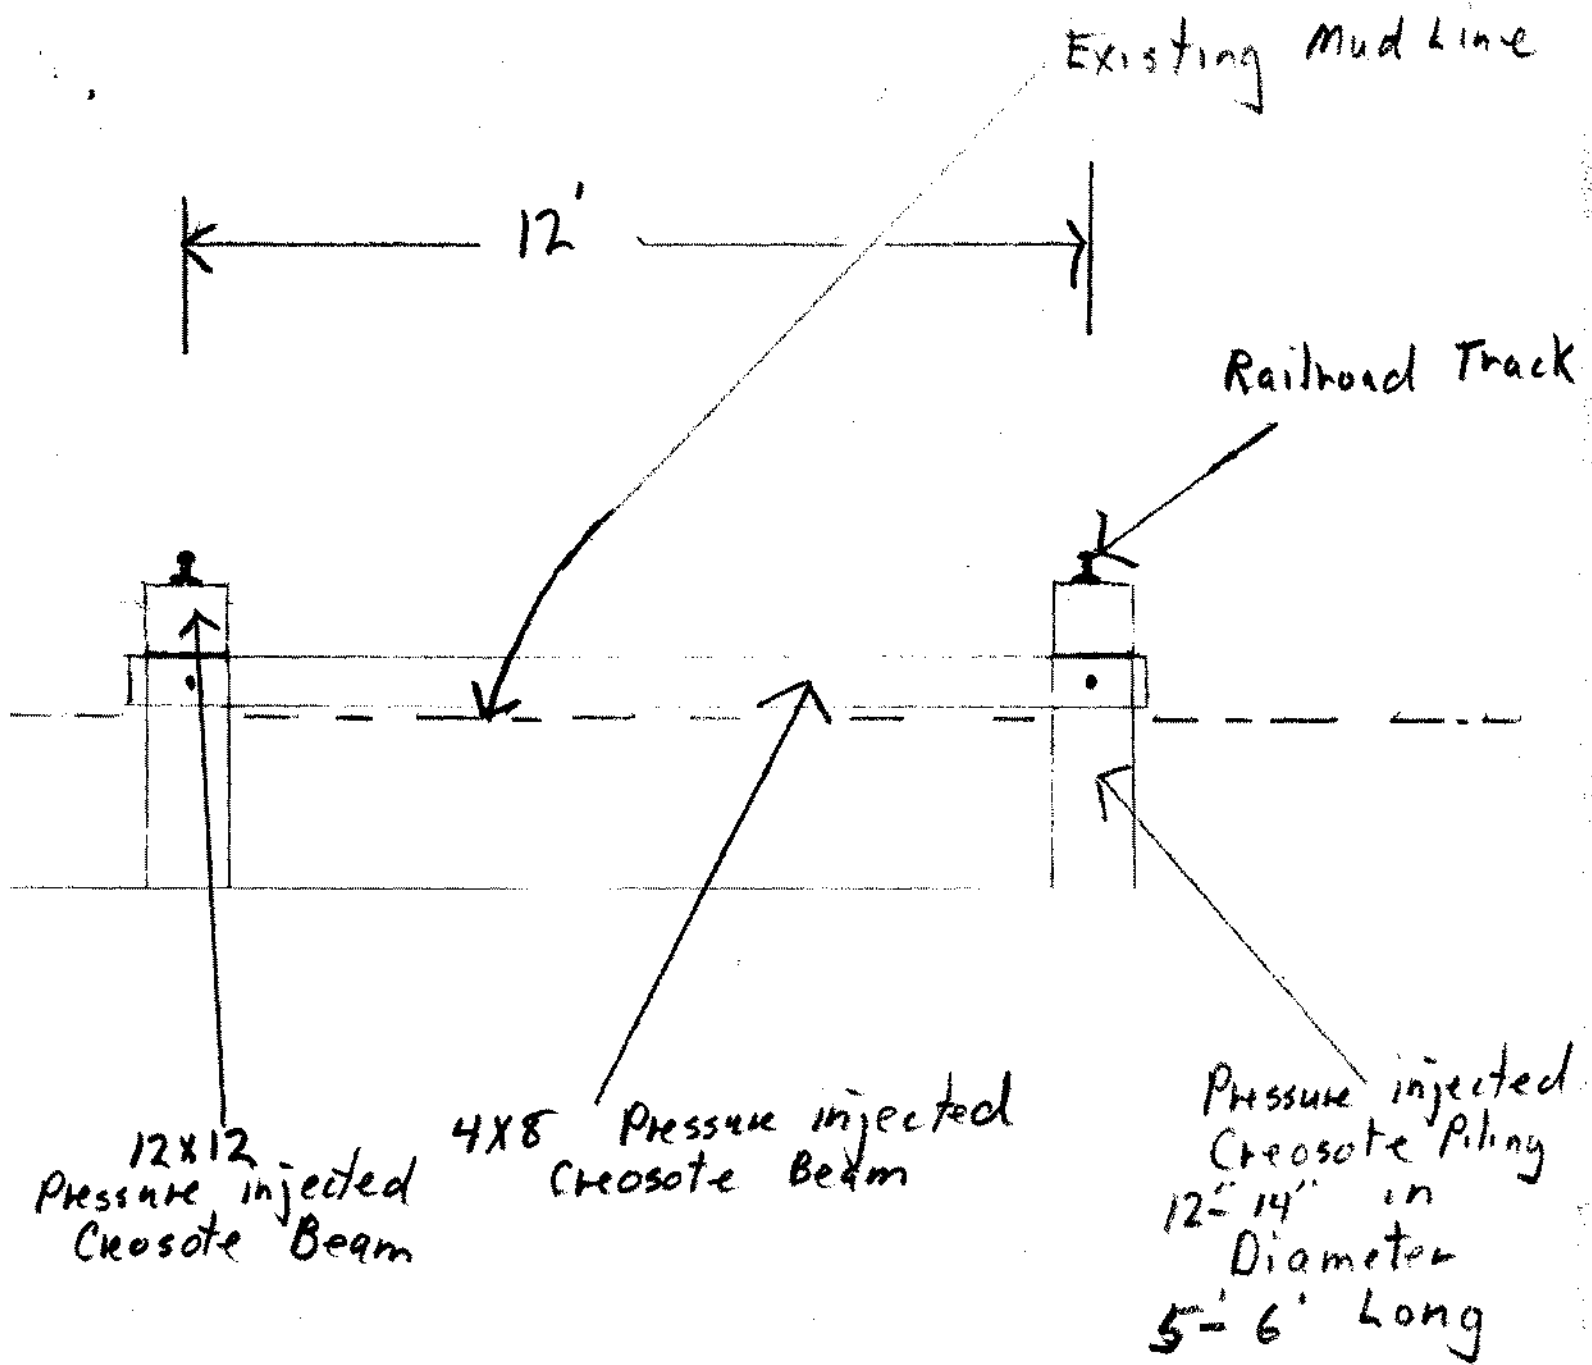 Existing Mud Line
12'
Railroad Track
12x12
Pressure injected
Creosote Beam
4x8 Pressure injected
Creosote Beam
Pressure injected
Creosote Piling
12"-14" in
Diameter
5'-6' Long